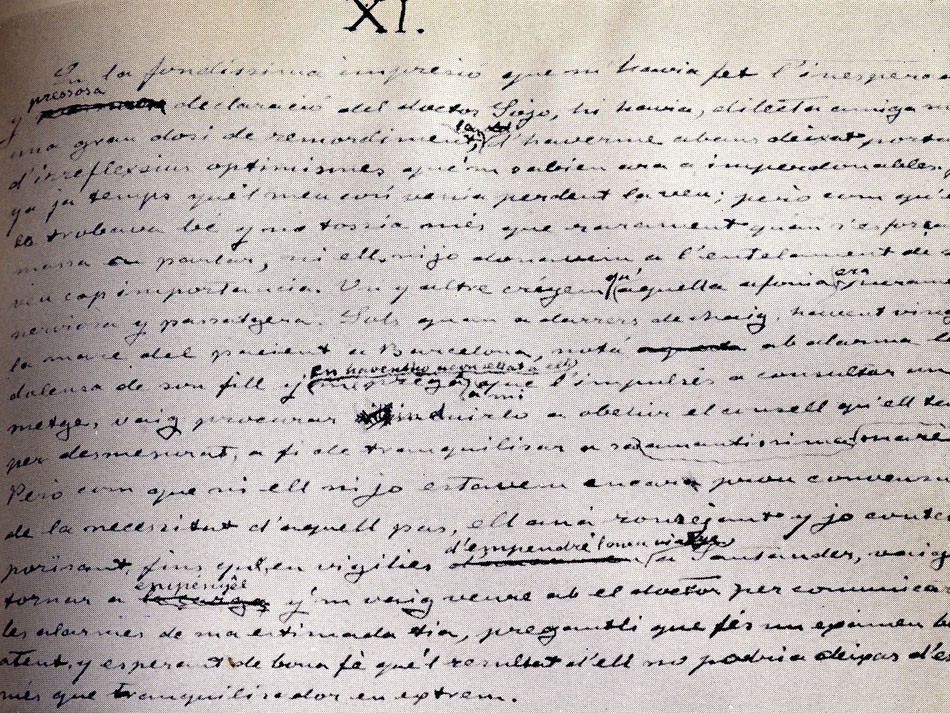 XI.
En la fondíssima impresió que m'havia fet l'inespera
pressosa
y declaració del doctor Giejo, hi havia, dilecta amiga
una gran dosi de remordiment, l'haverme abandeixat porta
d'irreflexius optimismes qué'm sabien ara a imperdonables.
ya ja temps qué'l meu cosí venia perdent la veu; però com qu'
es trobava bé y no tossia més que rarament quan s'esforsa
massa en parlar, ni ell ni jo donavem a l'entelament de
veu cap importancia. Un y altre creyem qu'aquella afonia era purament
nerviosa y passatgera. Sols quan a darrers de Maig, havent vingut
la mare del pacient a Barcelona, notá ab alarma
dolensa de son fill y en havent-ho aconsellat a ell, me pregá a mi que l'impulsés a consultar un
metge, vaig procurar induirlo a obehir el consell qu'ell
per desmesurat, a fi de tranquilisar a sa amantissima mare
Però com que ni ell ni jo estavem encara prou convensuts
de la necessitat d'aquell pas, ell aná ronsejant y jo contem
porisant, fins que, en vigilies d'empendre'l nou viatge a Santander, vaig
tornar a empényel y'm vaig veure ab el doctor per comunica
les alarmes de ma estimada tia, pregantli que fés un examen
atent, y esperant de bona fè qué'l resultat d'ell no podria deixar d'es
més que tranquilisador en extrem.